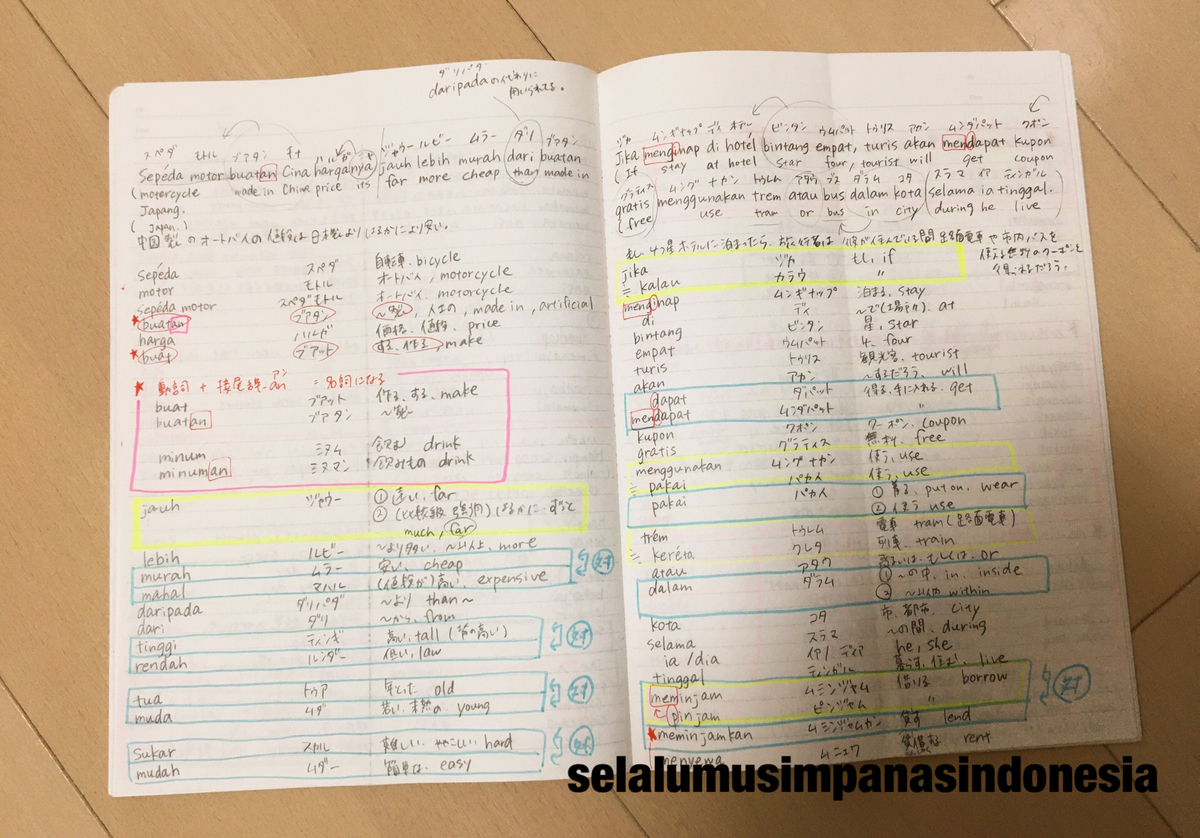 ダリパダ
daripadaの代わりに
用いられてる。
スペダ モトル ブアタン チナ ハルガニャ ジャウー ルビー ムラー ダリ ブアタン
Sepeda motor buatan Cina harganya jauh lebih murah dari buatan
(motorcycle made in China price its far more cheap than made in
Jepang.
(JAPAN.)
中国製のオートバイの値段は日本製よりはるかにより安い。
Sepéda スペダ 自転車、bicycle
motor モトル オートバイ, motorcycle
sepéda motor スペダモトル オートバイ, motorcycle
★buatan ブアタン 〜製、人工の, made in, artificial
harga ハルガ 価格、値段、price
★buat ブアット する、作る, make
★ 動詞 + 接尾辞-an アン = 名詞になる
buat ブアット 作る、する、make
buatan ブアタン 〜製
minum ミヌム 飲む drink
minuman ミヌマン 飲みもの drink
jauh ジャウー ①遠い, far
②(比較級 強調)はるかに・ずっと
much, far
lebih ルビー 〜より多い、〜以上、more
murah ムラー 安い, cheap
mahal マハル (値段が)高い、expensive
対
daripada ダリパダ 〜より than〜
dari ダリ 〜から, from
tinggi ティンギ 高い, tall (背の高い)
rendah ルンダー 低い, law
対
tua トゥア 年とった old
muda ムダ 若い、未熟の young
対
sukar スカル 難しい、ややこしい hard
mudah ムダー 簡単な、easy
対
ジカ ムンギナップ ディ オテー ビンタン ウムパット トゥリス アカン ムンダパット クポン
Jika menginap di hotél bintang empat, turis akan mendapat kupon
(If stay at hotel star four, tourist will get coupon
グラティス ムングナカン トゥレム アタウ ブス ダラム コタ スラマ イア ティンガル
gratis menggunakan trem atau bus dalam kota selama ia tinggal.
(free use tram or bus in city during he live
もし4つ星ホテルに泊まったら、旅行者は 彼が住んでいる間 路面電車や市内バスを
使える無料のクーポンを
得られるだろう。
jika ジカ もし, if
≒ kalau カラウ 〃
menginap ムンギナップ 泊まる, stay
di ディ 〜で(場所), at
bintang ビンタン 星, star
empat ウムパット 4, four
turis トゥリス 観光客、tourist
akan アカン 〜するだろう、will
dapat ダパット 得る、手に入れる、get
mendapat ムンダパット 〃
kupon クポン クーポン、coupon
gratis グラティス 無料、free
menggunakan ムングナカン 使う, use
≒ pakai パカイ 使う, use
pakai パカイ ①着る, put on, wear
②使う use
trém トゥレム 電車 tram (路面電車)
≒ keréta クレタ 列車、train
atau アタウ あるいは、もしくは、or
dalam ダラム ①〜の中, in, inside
②〜以内 within
kota コタ 市、都市, city
selama スラマ 〜の間、during
ia /dia イア/ディア he, she
tinggal ティンガル 暮らす、住む、live
meminjam ムミンジャム 借りる borrow
pinjam ピンジャム 〃
★meminjamkan ムミンジャムカン 貸す lend
対
menyewa ムニュワ rent
selalumusimpanasindonesia